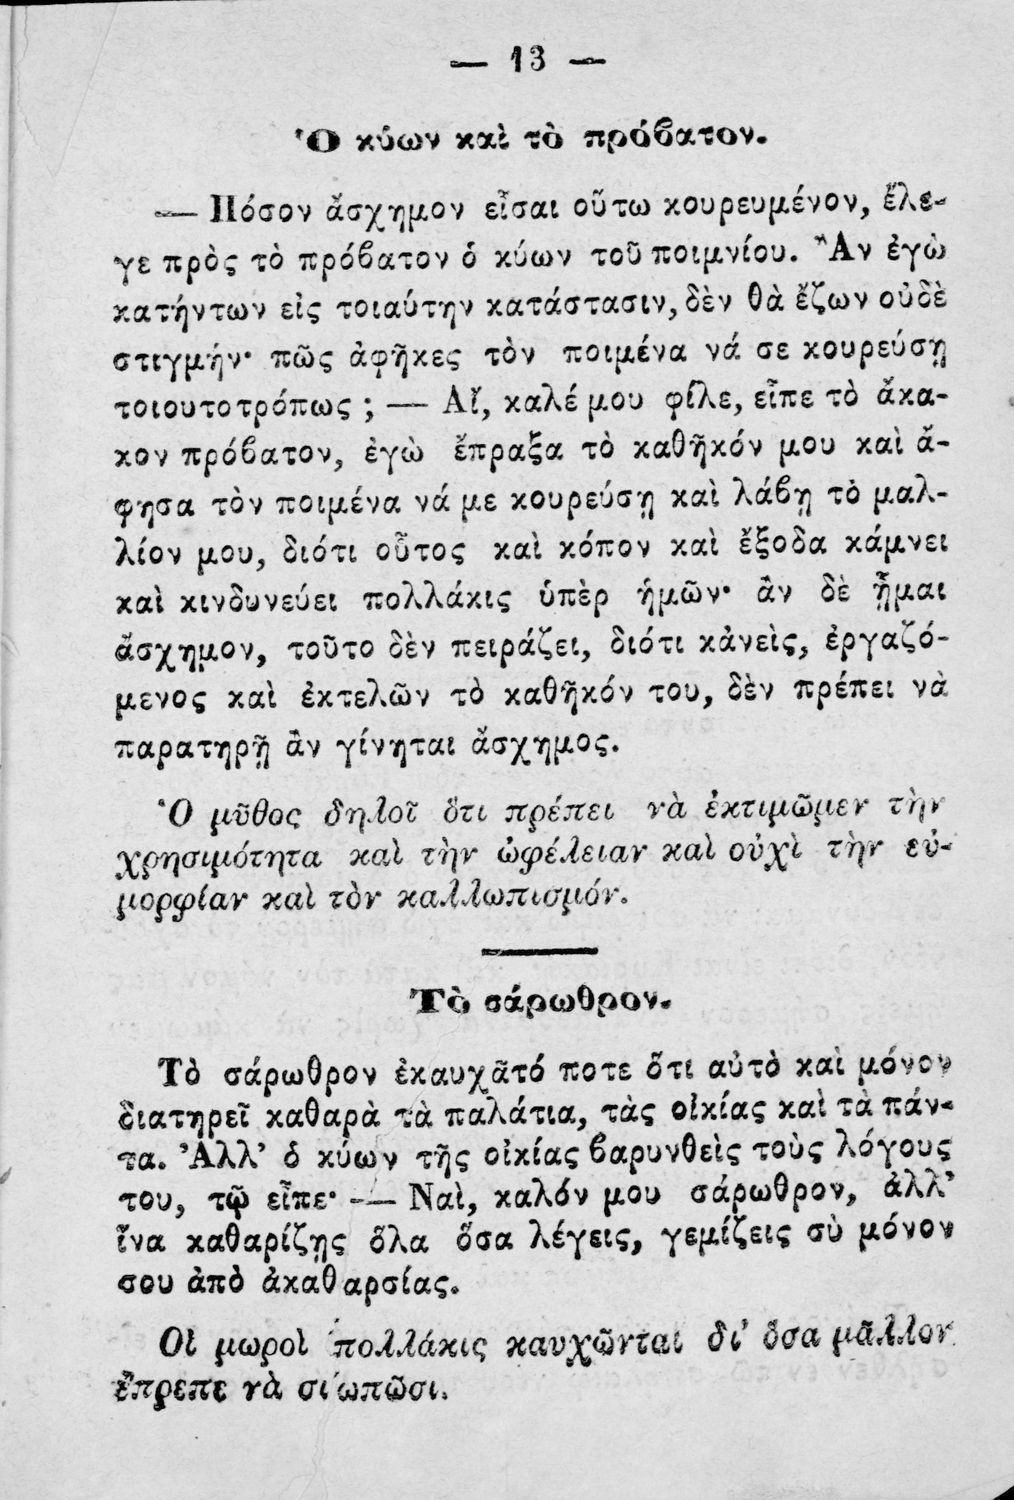 — 13 —
Ὁ κύων καὶ τὸ πρόβατον.
— Πόσον ἄσχημον εἶσαι οὕτω κουρευμένον, ἔλε-
γε πρὸς τὸ πρόβατον ὁ κύων τοῦ ποιμνίου. Ἂν ἐγὼ
κατήντων εἰς τοιαύτην κατάστασιν, δὲν θὰ ἔζων οὐδὲ
στιγμήν· πῶς ἀφῆκες τὸν ποιμένα νά σε κουρεύσῃ
τοιουτοτρόπως ; — Αἴ, καλέ μου φίλε, εἶπε τὸ ἄκα-
κον πρόβατον, ἐγὼ ἔπραξα τὸ καθῆκόν μου καὶ ἄ-
φησα τὸν ποιμένα νά με κουρεύσῃ καὶ λάβῃ τὸ μαλ-
λίον μου, διότι οὗτος καὶ κόπον καὶ ἔξοδα κάμνει
καὶ κινδυνεύει πολλάκις ὑπὲρ ἡμῶν· ἂν δὲ ᾖμαι
ἄσχημον, τοῦτο δὲν πειράζει, διότι κἀνεὶς, ἐργαζό-
μενος καὶ ἐκτελῶν τὸ καθῆκόν του, δὲν πρέπει νὰ
παρατηρῇ ἂν γίνηται ἄσχημος.
Ὁ μῦθος δηλοῖ ὅτι πρέπει νὰ ἐκτιμῶμεν τὴν
χρησιμότητα καὶ τὴν ὠφέλειαν καὶ οὐχὶ τὴν εὐ-
μορφίαν καὶ τὸν καλλωπισμόν.
Τὸ σάρωθρον.
Τὸ σάρωθρον ἐκαυχᾶτό ποτε ὅτι αὐτὸ καὶ μόνον
διατηρεῖ καθαρὰ τὰ παλάτια, τὰς οἰκίας καὶ τὰ πάν-
τα. Ἀλλ' ὁ κύων τῆς οἰκίας βαρυνθεὶς τοὺς λόγους
του, τῷ εἶπε· — Ναὶ, καλόν μου σάρωθρον, ἀλλ'
ἵνα καθαρίζῃς ὅλα ὅσα λέγεις, γεμίζεις σὺ μόνον
σου ἀπὸ ἀκαθαρσίας.
Οἱ μωροὶ πολλάκις καυχῶνται δι' ὅσα μᾶλλον
ἔπρεπε νὰ σιωπῶσι.